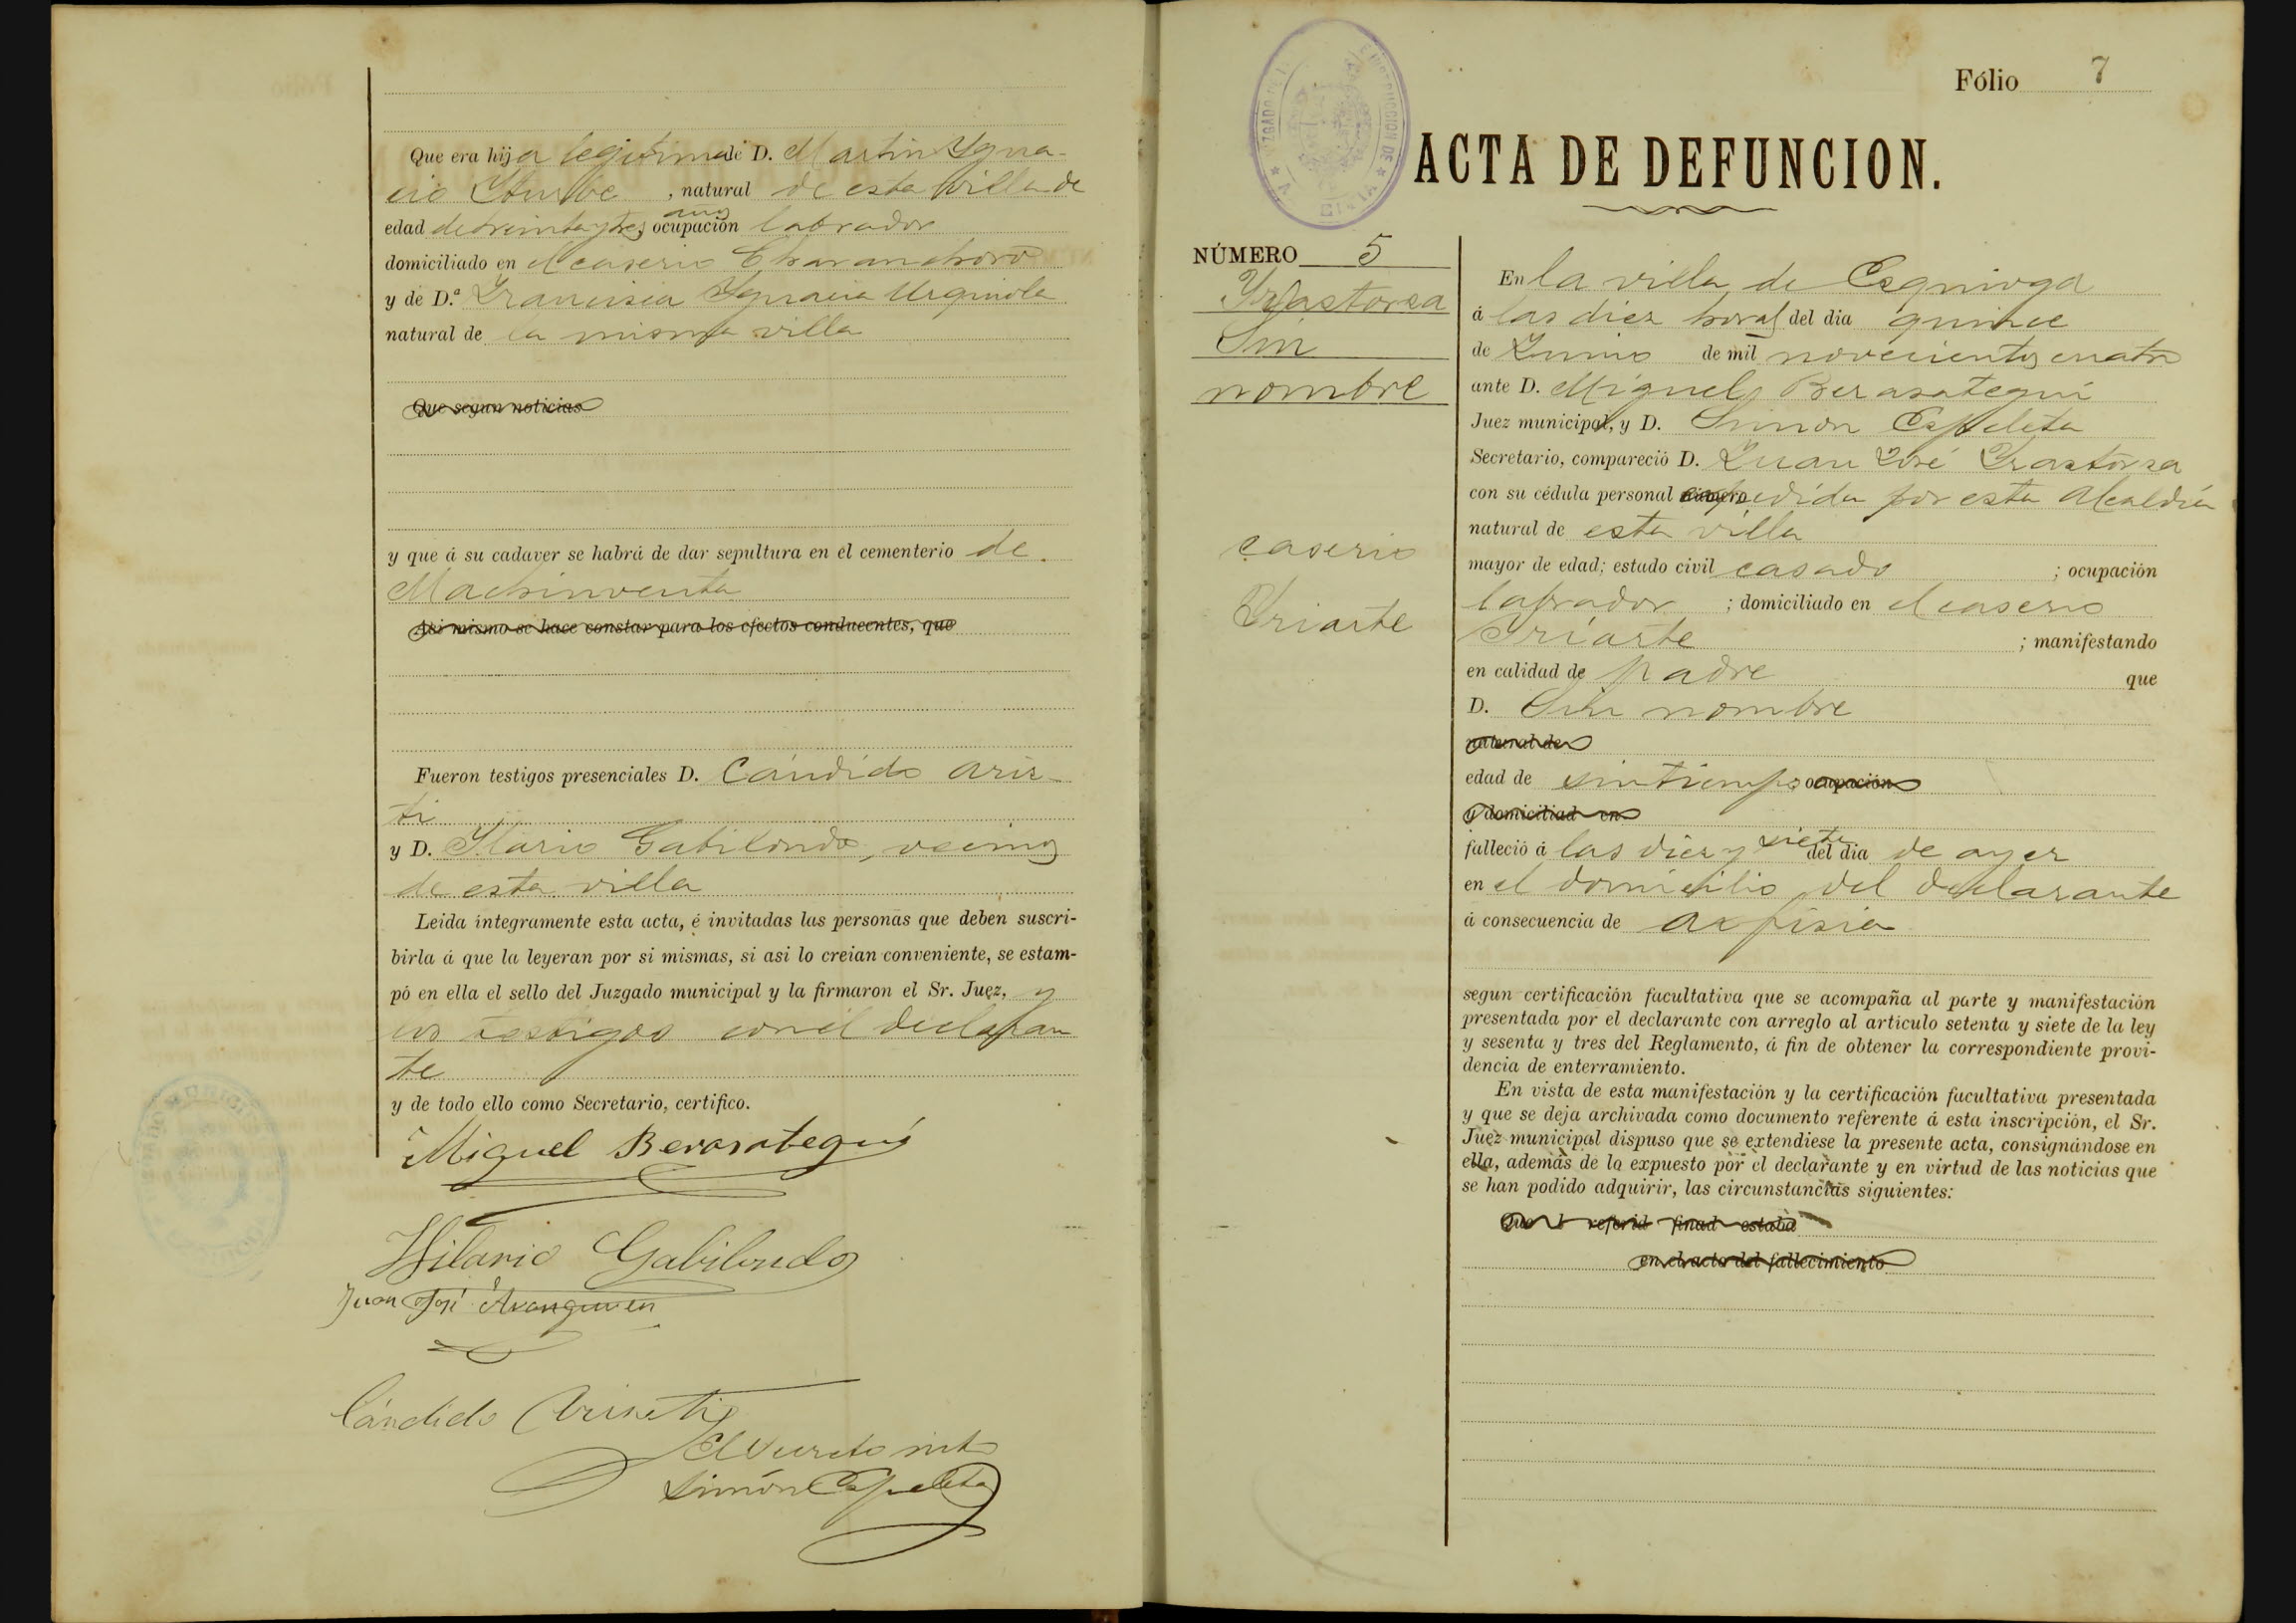 Que era hija legitima de D. Martin Ygna-
cio Yturbe, natural de esta villa de
edad de treinta y tres años, ocupación labrador
domiciliado en el caserio
y de D.ª Francisca Ygnacia Urquiola
natural de la misma villa
Que segun noticias
y que á su cadaver se habrá de dar sepultura en el cementerio de
Machinventa
Asi mismo se hace constar para los efectos conducentes, que
Fueron testigos presenciales D. Cándido Ariz-
ti
y D. Ylario Gabilondo, vecinos
de esta villa
Leida integramente esta acta, é invitadas las personas que deben suscri-
birla á que la leyeran por si mismas, si asi lo creian conveniente, se estam-
pó en ella el sello del Juzgado municipal y la firmaron el Sr. Juez, y
los testigos con el declaran
te
y de todo ello como Secretario, certifico.
Miguel Berasategui
Hilario Gabilondo
Juan José Aranguren
Cándido Arizti
El Secreto
Simón Espeleta
Fólio 7
ACTA DE DEFUNCION.
NÚMERO 5
Yrastorza
Sin
nombre
caserio
Yriarte
En la villa de Ezquioga
á las diez horas del dia quince
de Junio de mil novecientos cuatro
ante D. Miguel Berasategui
Juez municipal, y D. Simon Espeleta
Secretario, compareció D. Juan José Yrastorza
con su cédula personal número expedida por esta Alcaldia
natural de esta villa
mayor de edad; estado civil casado ; ocupación
labrador ; domiciliado en el caserio
Yriarte ; manifestando
en calidad de padre que
D. Sin nombre
natural de
edad de sin tiempo ocupación
y domiciliad en
falleció á las diez y siete del dia de ayer
en el domicilio del declarante
á consecuencia de axfisia
segun certificación facultativa que se acompaña al parte y manifestación
presentada por el declarante con arreglo al articulo setenta y siete de la ley
y sesenta y tres del Reglamento, á fin de obtener la correspondiente provi-
dencia de enterramiento.
En vista de esta manifestación y la certificación facultativa presentada
y que se deja archivada como documento referente á esta inscripción, el Sr.
Juez municipal dispuso que se extendiese la presente acta, consignándose en
ella, además de lo expuesto por el declarante y en virtud de las noticias que
se han podido adquirir, las circunstancias siguientes:
Que l referid finad estaba
en el acto del fallecimiento